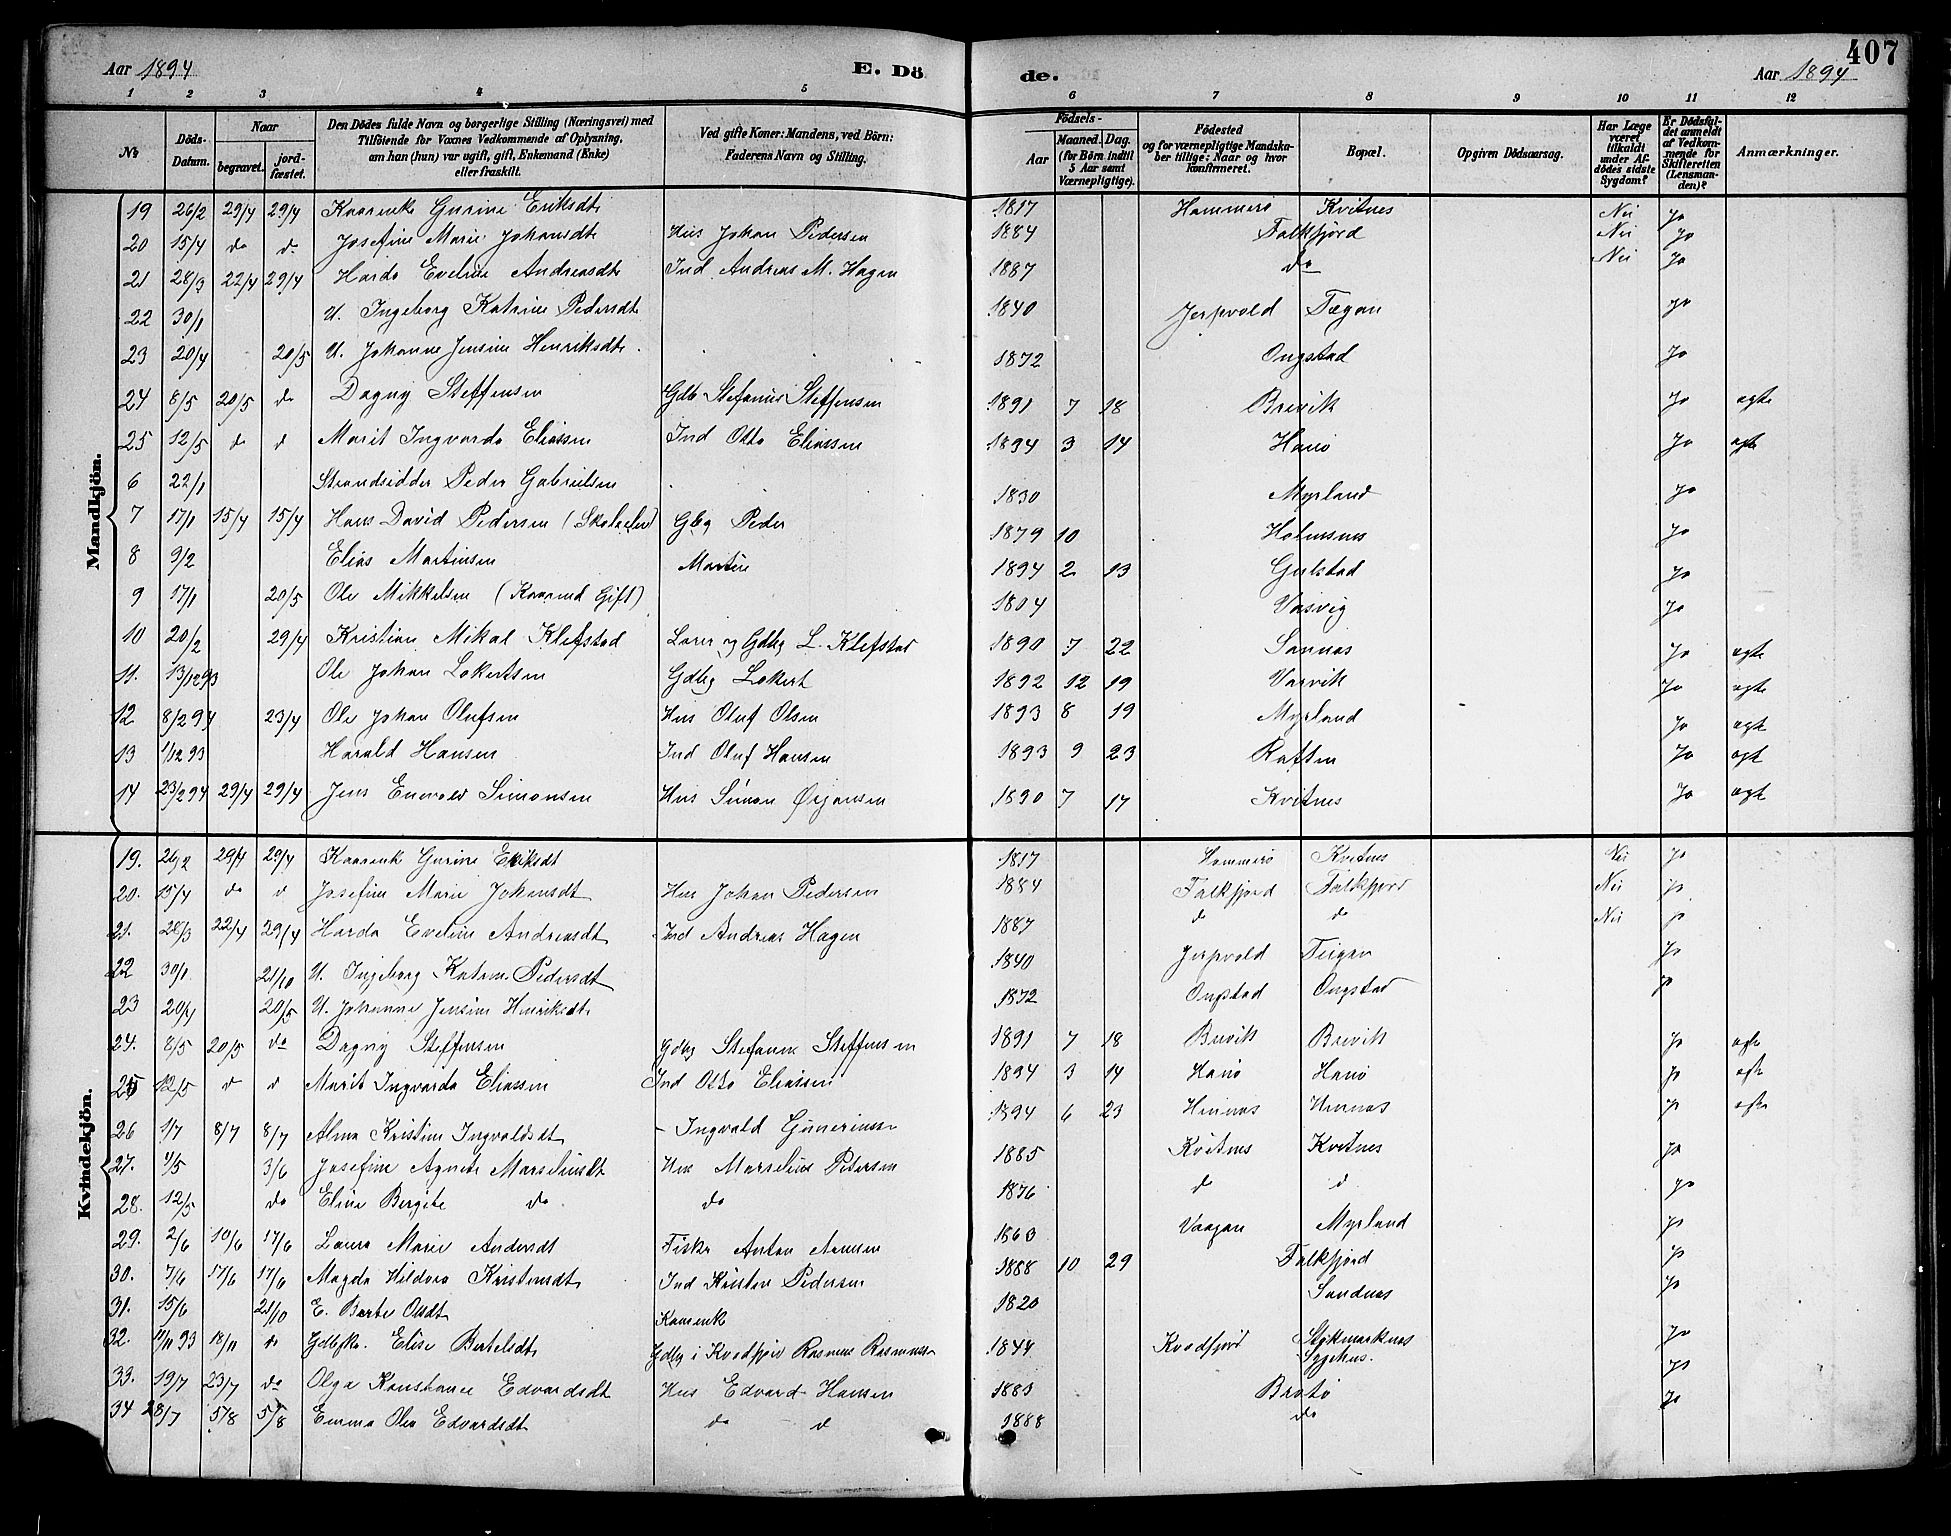 407
Aar 1894 E. Dö
de. Aar 1894
1 2 3 4 5
6 7 8 9 10 11 12
№ Döds-Datum. Naar begravet. jordfæstet. Den Dödes fulde Navn og borgerlige Stilling (Næringsvei) med Tilföiende for Voxnes Vedkommende af Oplysning, om han (hun) var ugift, gift, Enkemand (Enke) eller fraskilt. Ved gifte Koner: Mandens, ved Börn: Faderens Navn og Stilling.
Födsels- Aar Maaned. Dag. (for Börn indtil 5 Aar samt Værnepligtige). Födested og for værnepligtige Mandskaber tillige: Naar og hvor Konfirmeret. Bopæl. Opgiven Dödsaarsag. Har Læge været tilkaldt under Afdödes sidste Sygdom? Er Dödsfaldet anmeldt af Vedkommende for Skifteretten (Lensmanden)? Anmærkninger.
Mandkjön.
19 26/2 29/4 29/4 Kaarenke Gurine Eriksdt 1817 Hammerö Kvitnes Nei Ja
20 15/4 do d Josefine Marie Johansdt Hus Johan Pedersen 1884 Falkfjord Nei Ja
21 28/3 22/4 29/4 Harda Eveline Andreasdt Ind Andreas M. Hagen 1887 do Nei Ja
22 30/1 U. Ingeborg Katrine Pedersdt 1840 Jerpvold Tegan Ja
23 20/4 20/5 U. Johanne Jensine Henriksdt. 1872 Ongstad Ja
24 8/5 20/5 do Dagny Steffensen Gdb Stefanus Steffensen 1891 7 18 Brevik Ja agte
25 12/5 do d Marit Ingvarda Eliassen Ind Otto Eliassen 1894 3 14 Hanö Ja agte
6 22/1 Strandsidder Peder Gabrielsen 1830 Myrland Ja
7 17/1 15/4 15/4 Hans David Pedersen (Skoleelev) Gbg Peder 1879 10 Holmsnes Ja
8 9/2 Elias Martinsen Martin 1894 2 13 Gulstad Ja
9 17/1 20/5 Ole Mikkelsen (Kaarmd Gift) 1804 Vasvig Ja
10 20/2 29/4 Kristian Mikal Klefstad Lærer og Gdbg L. Klefstad 1890 7 22 Sannas Ja agte
11. 13/12 93 Ole Johan Lokertsen Gdbg Lokert 1892 12 19 Varvik Ja agte
12 8/2 94 23/4 Ole Johan Olufsen Hus Oluf Olsen 1893 8 19 Myrland Ja agte
13 1/12 93 Harald Hansen Ind Oluf Hansen 1893 9 23 Raften Ja agt
14 23/2 94 29/4 29/4 Jens Enevold Simonsen Hus Simon Örjansen 1890 7 17 Kvitnes Ja agt
Kvindekjön.
19. 26/2 29/4 29/4 Kaarenk Gurine Eriksdt 1817 Hammerö Kvitnes Nei Ja
20. 15/4 do d Josefine Marie Johansdt Hus Johan Pedersen 1884 Falkfjord Falkfjord Nei ja
21. 28/3 22/4 29/4 Harda Eveline Andreasdt Ind Andreas Hagen 1887 do do Nei ja
22 30/1. 21/10 U. Ingeborg Katrine Pedersdt 1840 Jerpvold Teigan ja
23 20/4 20/5 U. Johanne Jensine Henriksdt. 1872 Ongstad Ongstad ja
24. 8/5 20/5 do Dagny Steffensen Gdbg Stefanus Steffensen 1891 7 18 Brevik Brevik ja agte
25 12/5 d d Marit Ingvarda Eliassen Ind Otto Eliassen 1894 3 14 Hanö Hanö ja agte
26 1/7 8/7 8/7 Alma Kristine Ingvaldsdt - Ingvald Gunerius 1894 6 23 Hennas Hennas ja agte
27. 4/5 3/6 Josefine Agnete Marseliusdt Hus Marselius Petersen 1885 Kvitnes Kvitnes ja
28. 12/5 do Eline Bergite do do 1876 d d ja
29. 2/6 10/6 17/6 Laura Marie Andersdt Fisker Anton 1863 Vaagan Myrland ja
30. 7/6 17/6 17/6 Magda Hildora Kristensdt Ind Kristen Pedersen 1888 10 29 Falkfjord ja
31. 15/6 21/10 E. Berte Olsdt Kaarenk 1820 Sandnas ja
32. 11/11 93 18/11 do Gdbfko. Elise Bertelsdt Gdbg i Kvedfjör Rasmus Rasmussen 1844 Kvedfjörd Stokmarknas Sygehus. Ja
33. 19/7 23/7 do Olga Konstance Edvardsdt Hus Edvard Hansen 1883 Brotö Ja
34 28/7 5/8 5/8 Emma Olea Edvardsdt do d 1888 do Ja